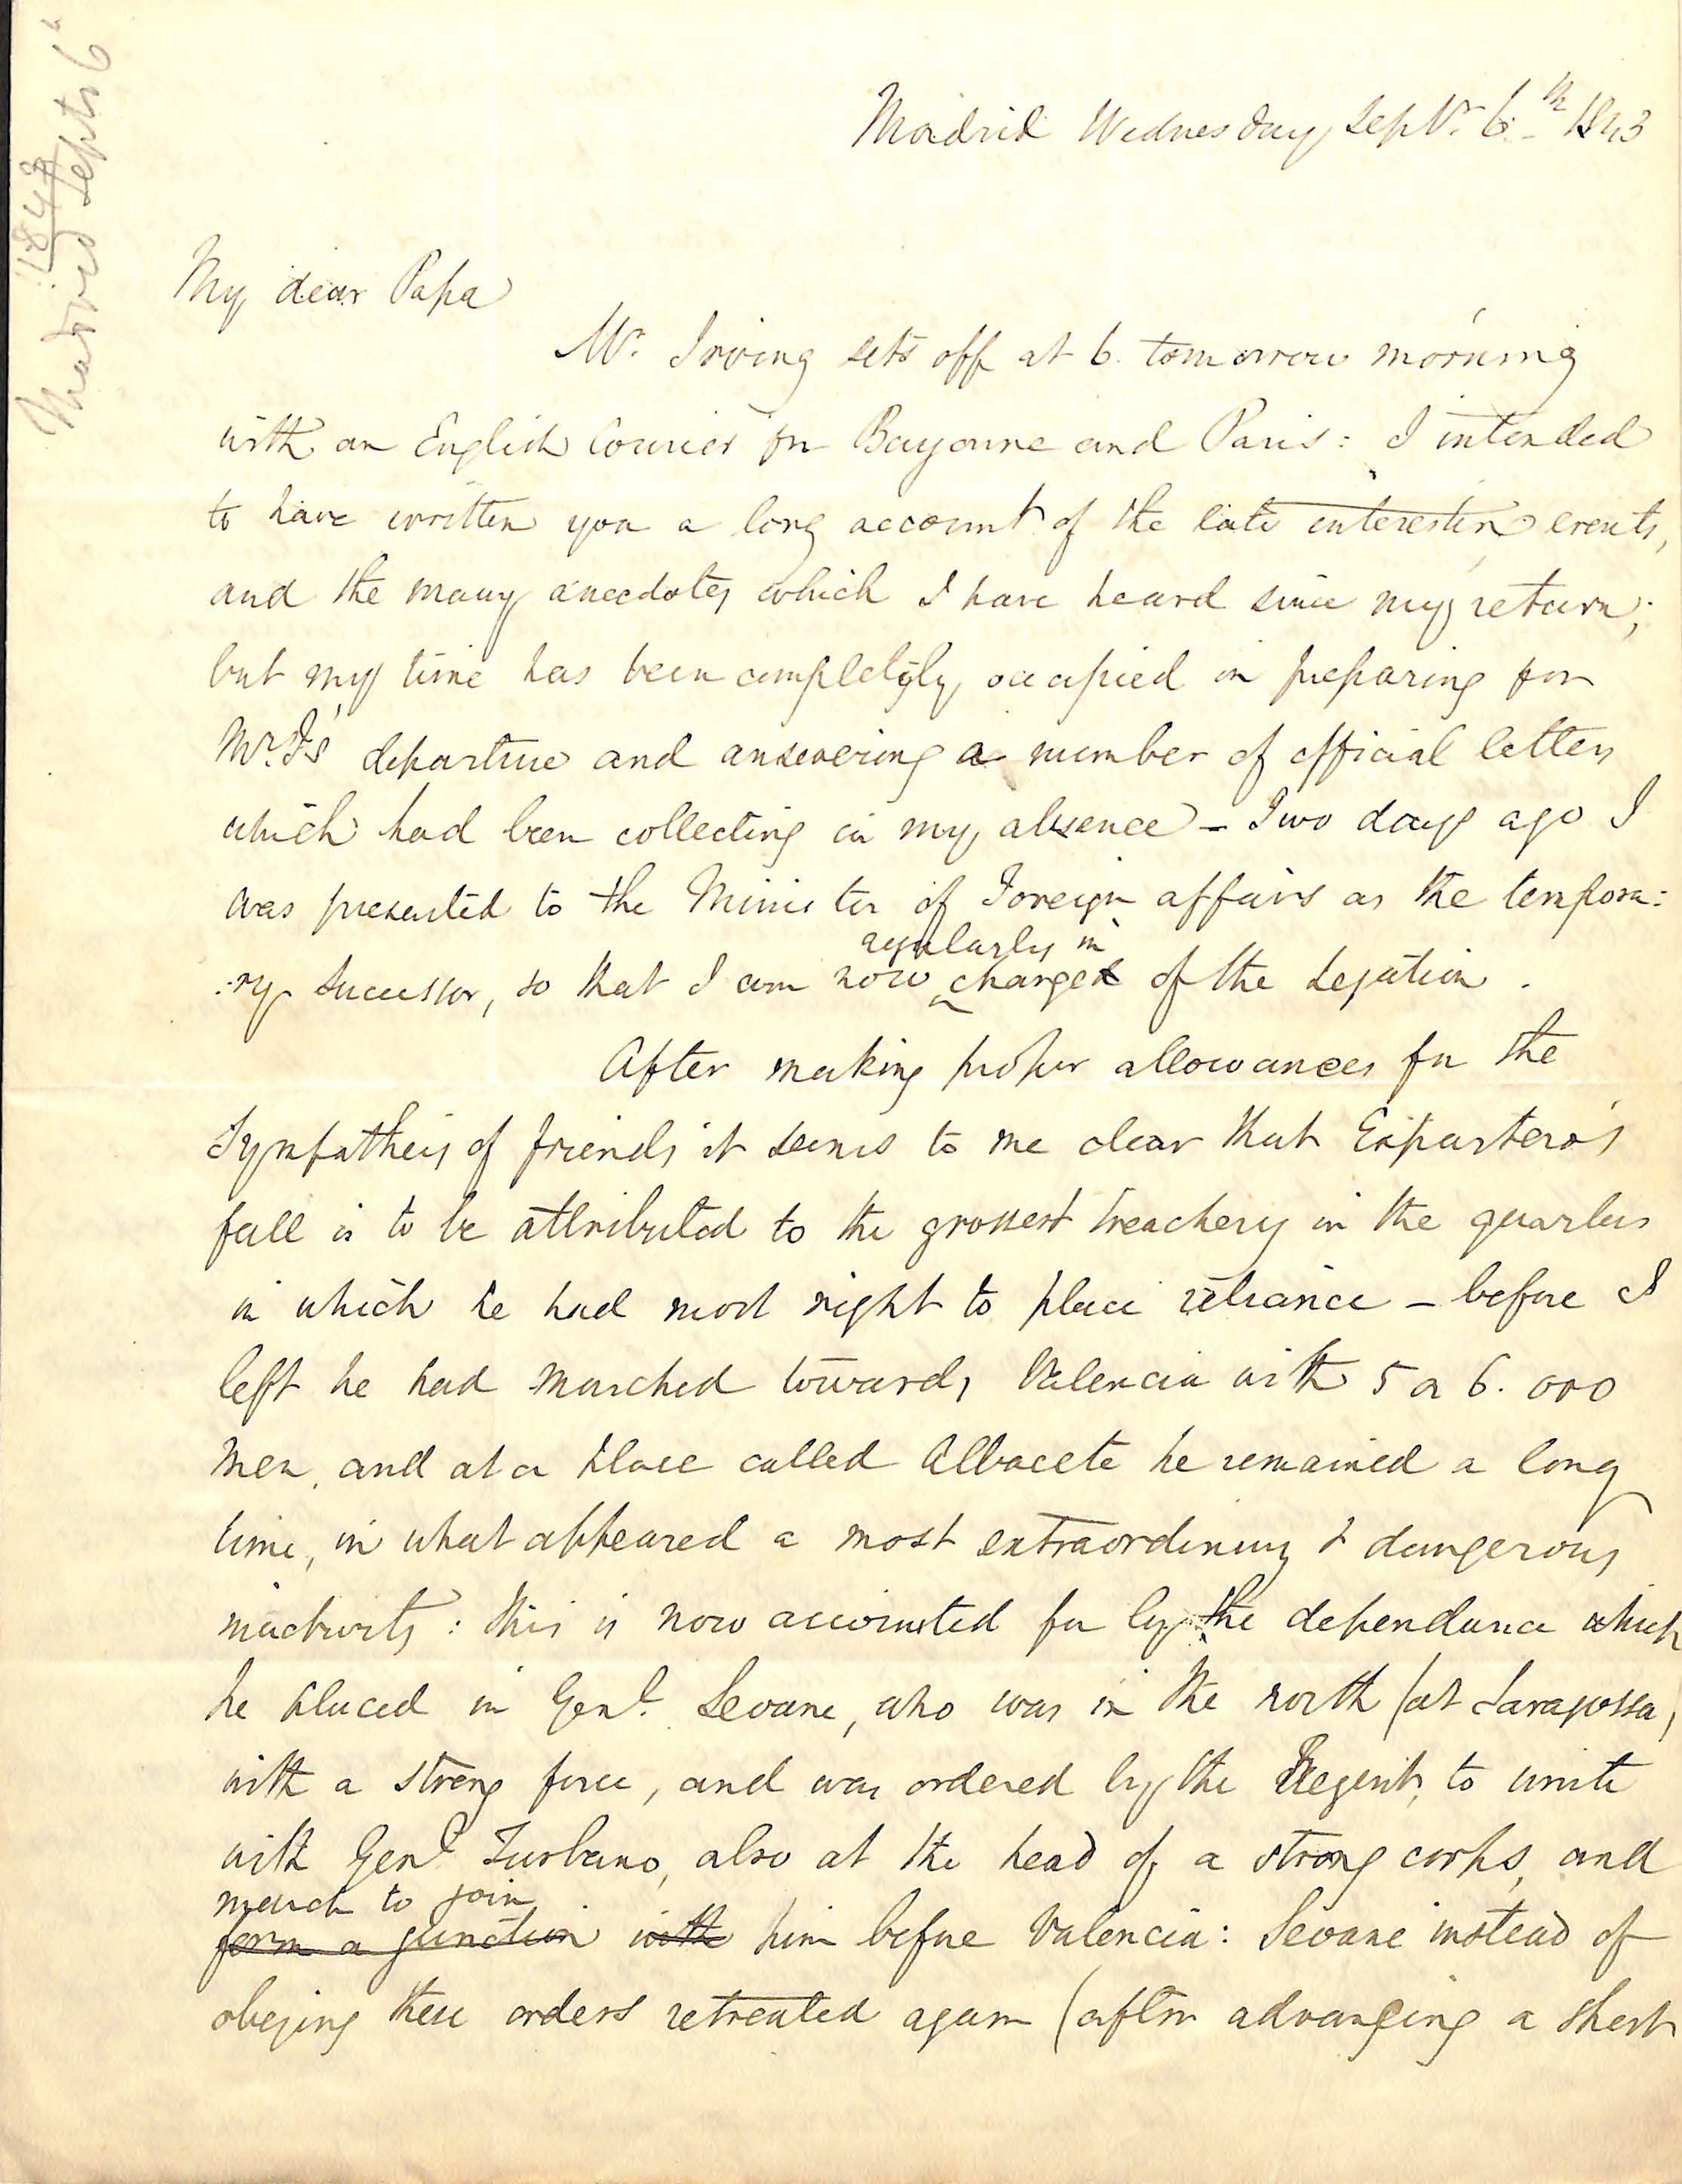 1843
Madrid Septr 6"
Madrid Wednesday Septr. 6th 1843
My dear Papa
Mr. Irving sets off at 6. tomorrow morning
with an English Courier for Bayonne and Paris: I intended
to have written you a long account of the late interesting events,
and the many anecdotes which I have heard since my return;
but my time has been completely occupied in preparing for
Mr. I's departure and answering a number of official letters
which had been collecting in my absence - Two days ago I
was presented to the Minister of Foreign affairs as the tempora:
regularly in
:ry successor, so that I am now charged of the Legation.
After making proper allowances for the
Sympatheis of friends it seems to me clear that Espartero's
fall is to be attributed to the grossest treachery in the quarters
in which he had most right to place reliance - before I
left he had marched towards Valencia with 5 or 6.000
men, and at a place called Albacete he remained a long
time, in what appeared a most extraordinary & dangerous
inactivity: this is now accounted for by the dependance which
he placed in Genl. Seoane, who was in the north (at Saragossa,
with a strong force, and was ordered by the Regent, to unite
with Genl Zurbano, also at the head of a strong corps, and
march to join
form a junction with him before Valencia: Seoane instead of
obeying these orders retreated again (after advancing a short